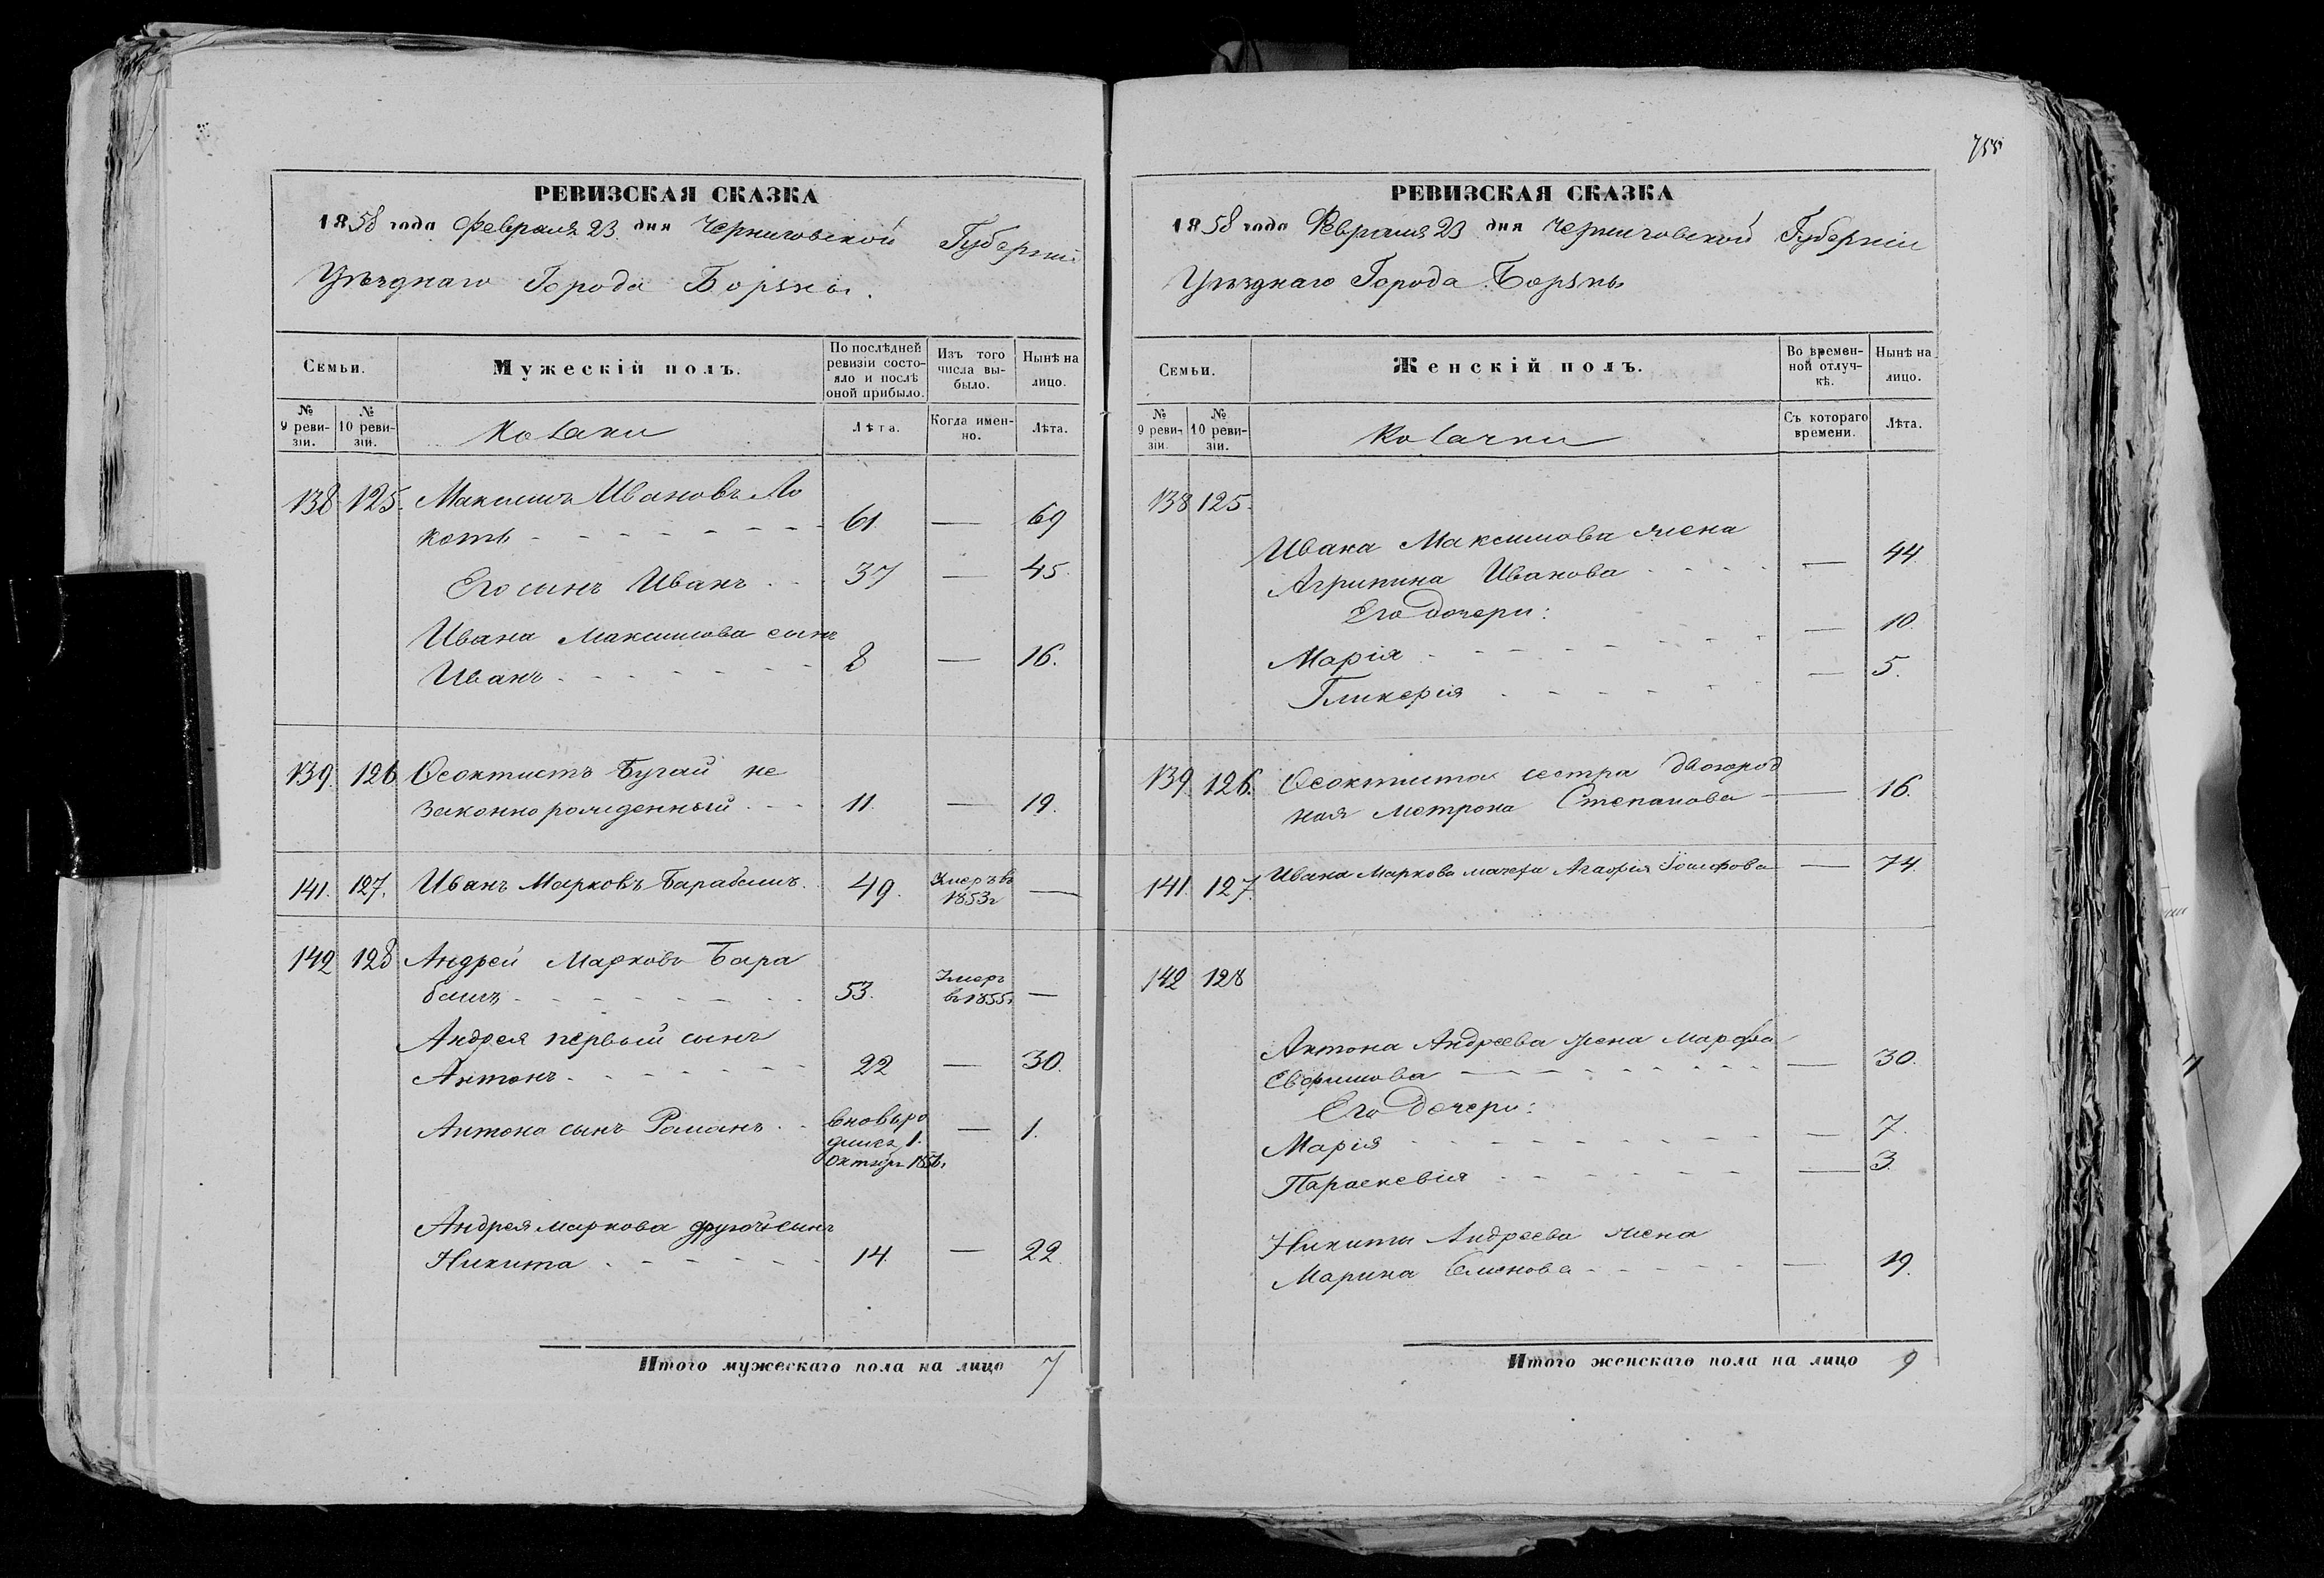 РЕВИЗСКАЯ СКАЗКА
1858 года Февраля 23 дня Черниговской Губерніи
Уѣзднаго Города Борзны.
Семьи.
Мужескій полъ.
По послѣдней ревизіи состояло и послѣ оной прибыло.
Изъ того числа выбыло.
Нынѣ на лицо.
№ 9 ревизіи.
№ 10 ревизіи.
Козаки
Лѣта.
Когда именно.
Лѣта.
138 125. Максимъ Ивановъ Ло
коть 61 — 69
Его сынъ Иванъ 37 — 45.
Ивана Максимова сынъ
Иванъ 8 — 16.
139. 126 Ѳеоктистъ Бугай не
законнорожденный 11. — 19.
141. 127. Иванъ Марковъ Барабашъ. 49. Умеръ въ 1853г —
142 128 Андрей Марковъ Бара
башъ 53. Умеръ въ 1855г —
Андрея первый сынъ
Антонъ 22 — 30.
Антона сынъ Романъ вновь ро — 1.
дился 1.
Октября 1856г
Андрея Маркова другой сынъ
Никита 14. — 22.
Итого мужескаго пола на лицо 7
755
РЕВИЗСКАЯ СКАЗКА
1858 года Февраля 23 дня Черниговской Губерніи
Уѣзднаго Города Борзны
Семьи.
Женскій полъ.
Во временной отлучкѣ.
Нынѣ на лицо.
№ 9 ревизіи.
№ 10 ревизіи.
Козачки
Съ котораго времени.
Лѣта.
138 125.
Ивана Максимова жена
Агрипина Иванова — 44.
Его дочери:
Марія — 10.
Гликерія — 5.
139 126. Ѳеоктиста сестра двоюрод
ная Мотрона Степанова — 16.
141. 127. Ивана Маркова мачеха Агафія Іосифова — 74.
142 128
Антона Андреева жена Марфа
Евфимова — 30.
Его дочери:
Марія — 7.
Параскевія — 3.
Никиты Андреева жена
Марина Семенова — 19.
Итого женскаго пола на лицо 9